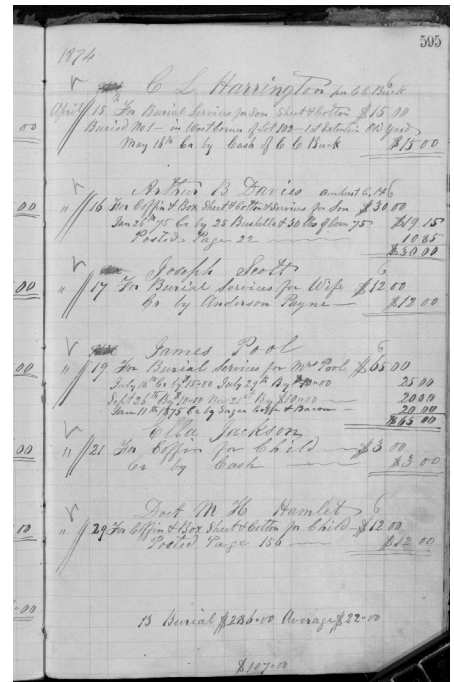 595
1874
C L Harrington for C C Buck 6
April 15th For Burial Services for Son Sheet & Cotton $15.00
Buried No 1 - in West Corner of Lot 102 - 1st Old Yard
May 16th Cr by Cash of C C Buck $15 00
Arthur B Davies Amherst C. H 6
" 16 For Coffin & Box Sheet & Cotton & Services for Son $30.00
Jan 26th 75 Cr by 25 Bushells & 30 lbs of Corn 75 $19.15
Posted Page 22 10 85
$30.00
Joseph Scott 6
" 17 For Burial Services for Wife $12 00
Cr by Anderson Payne $12 00
James Pool 6
" 19 For Burial Services for Mrs Pool $65.00
July 16th Cr by $15=00 July 29th By $10=00 25 00
Sept 26th By $10=00 Nov 21st By $10=00 20 00
Jan 11th 1875 Cr by Sugar Coffe & Bacon 20 00
$65 00
Ella Jackson
" 21 For Coffin for Child $3 00
Cr by Cash $3 00
Doct M H Hamlet 6
" 29 For Coffin & Box Sheet & Cotton for Child $12.00
Posted Page 156 $12 00
13 Burial $286=00 Average $22=00
$107=00
00
00
00
00
00
00
00